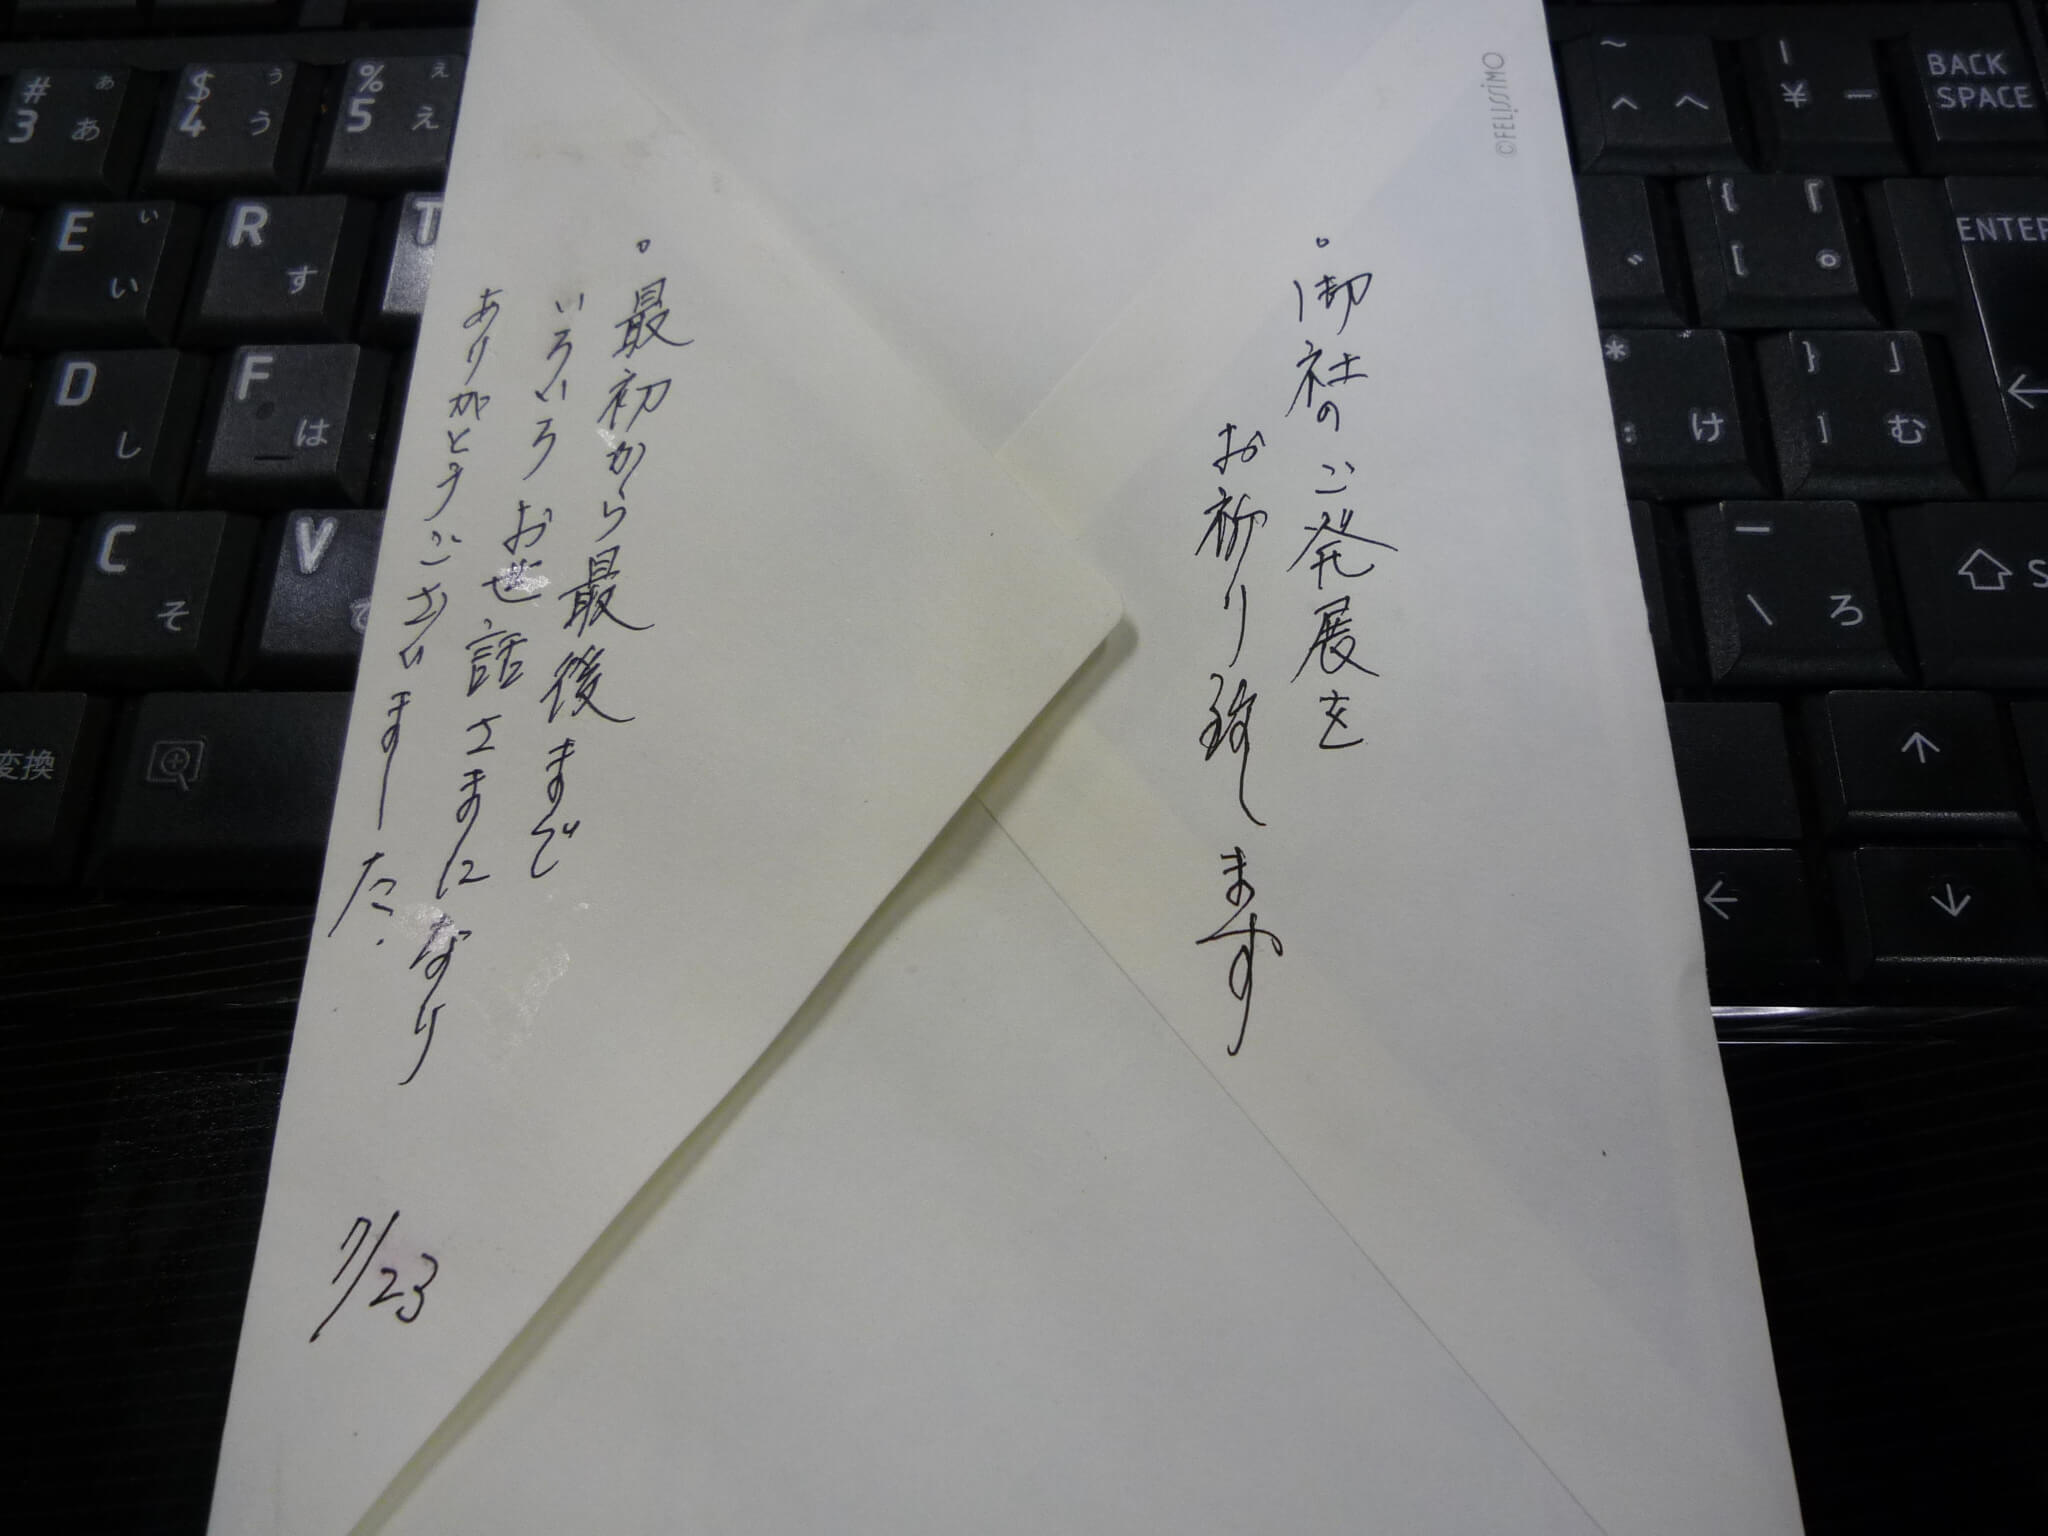 ©FELISSIMO
。御社のご発展を
お祈り致します
。最初から最後まで
いろいろお世話さまになり
ありがとうございました.
7/23
# ぁ
3 あ
$ ぅ
4 う
% ぇ
5 え
~
^ へ
|
¥ ー
BACK
SPACE
E ぃ
い
R
す
T
{ 「
[ ゜
ENTER
D
し
F
は
*
: け
} 」
] む
C
そ
V
_
\ ろ
変換